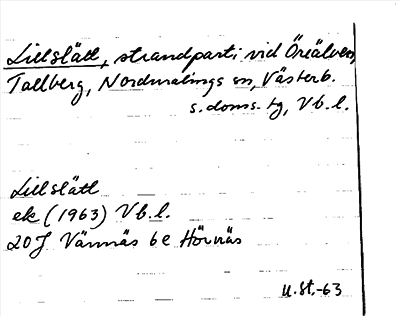 Lillslått, strandparti vid Öreälven,
Tallberg, Nordmalings sn, Västerb.
s. doms. tg, Vb. l.
Lillslått
ek (1963) Vb. l.
20 J Vännäs 6 e Hörnäs
U.St.-63